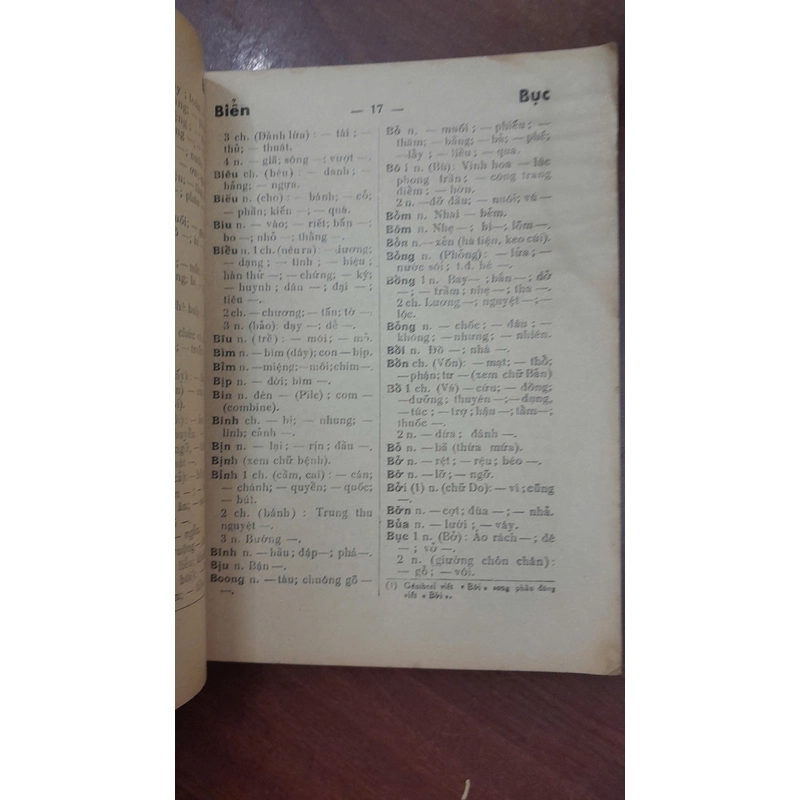 Biển
— 17 —
Bục
3 ch. (Đánh lừa) : — tài ; —
thủ; — thuật.
4 n. — giả; sóng —; vượt —.
Biêu ch. (bêu) : — danh ; —
hàng; — ngựa.
Biếu n. (cho) : — bánh; — cỗ;
— phần; kiến — ; — quà.
Bíu n. — vào; — riết; bấn —;
bo —; nhỏ —; thẳng —.
Biểu n. 1 ch. (nêu ra) : — dương;
— dạng ; — tình ; — hiệu ;
hàn thử —; — chứng; — ký;
— huynh ; dâu — ; đại — ;
tiêu —.
2 ch. — chương; — tấu; tờ —.
3 n. (bảo) : dạy —; dễ —.
Bĩu n. (trề) : — môi ; — mỏ.
Bìm n. — bìm (dây); con — bịp.
Bỉm n. — miệng; — môi; chim —.
Bịp n. — đời; bìm —.
Bin n. đèn — (Pile) ; com —
(combine).
Binh ch. — bị; — nhung; —
lính; cảnh —.
Bịn n. — lại ; — rịn ; đầu —.
Bịnh (xem chữ bệnh).
Bỉnh 1 ch. (cầm, cai) : — cán;
— chánh; — quyền; — quốc;
— bút.
2 ch. (bánh) : Trung thu
nguyệt —.
3 n. Bướng —.
Bình n. — bầu; đập —; phá —.
Bịu n. Bận —.
Boong n. — tàu; chuông gõ —
—.
Bỏ n. — muối ; — phiếu ; —
thăm ; — bằng ; — bà ; — phế;
— lầy ; — liều ; — qua.
Bô 1 n. (Bù) : Vinh hoa — lúc
phong trần ; — công trang
điểm ; — hờn.
2 n. — đỡ đầu; — nuôi; vú —
Bỏm n. Nhai — bẻm.
Bõm n. Nhẹ — ; bì —; lõm —.
Bỏn n. — xẻn (hà tiện, keo cúi).
Bỏng n. (Phỏng) : — lửa; —
nước sôi; t.đ. bé —.
Bổng 1 n. Bay — ; bắn —; đỡ
—; — trầm; nhẹ —; tha —.
2 ch. Lương —; nguyệt —;
lộc.
Bỗng n. — chốc; — đâu; —
không; — nhưng; — nhiên.
Bồi n. Đồ —; nhà —.
Bổn ch. (Vốn) : — mạt; — thổ;
— phận; tư — (xem chữ Bản)
Bổ 1 ch. (Vá) — cứu; — đồng;
— dưỡng; thuyên —; — dụng,
— túc ; — trợ ; hậu —; tẩm —;
thuốc —.
2 n. — dừa ; đánh —.
Bỏ n. — bã (thừa mứa).
Bở n. — rệt; — rệu; béo —.
Bỡ n. — lỡ; — ngỡ.
Bởi (1) n. (chữ Do) : — vì; cũng
—.
Bỡn n. — cợt; đùa —; — nhả.
Bủa n. — lưới ; — vây.
Bục 1 n. (Bở) : Áo rách —; đê
— ; vỡ —.
2 n. (giường chôn chân) :
— gỗ ; — vôi.
(1) Génibrel viết « Bỡi » song phần đông
viết « Bởi ».